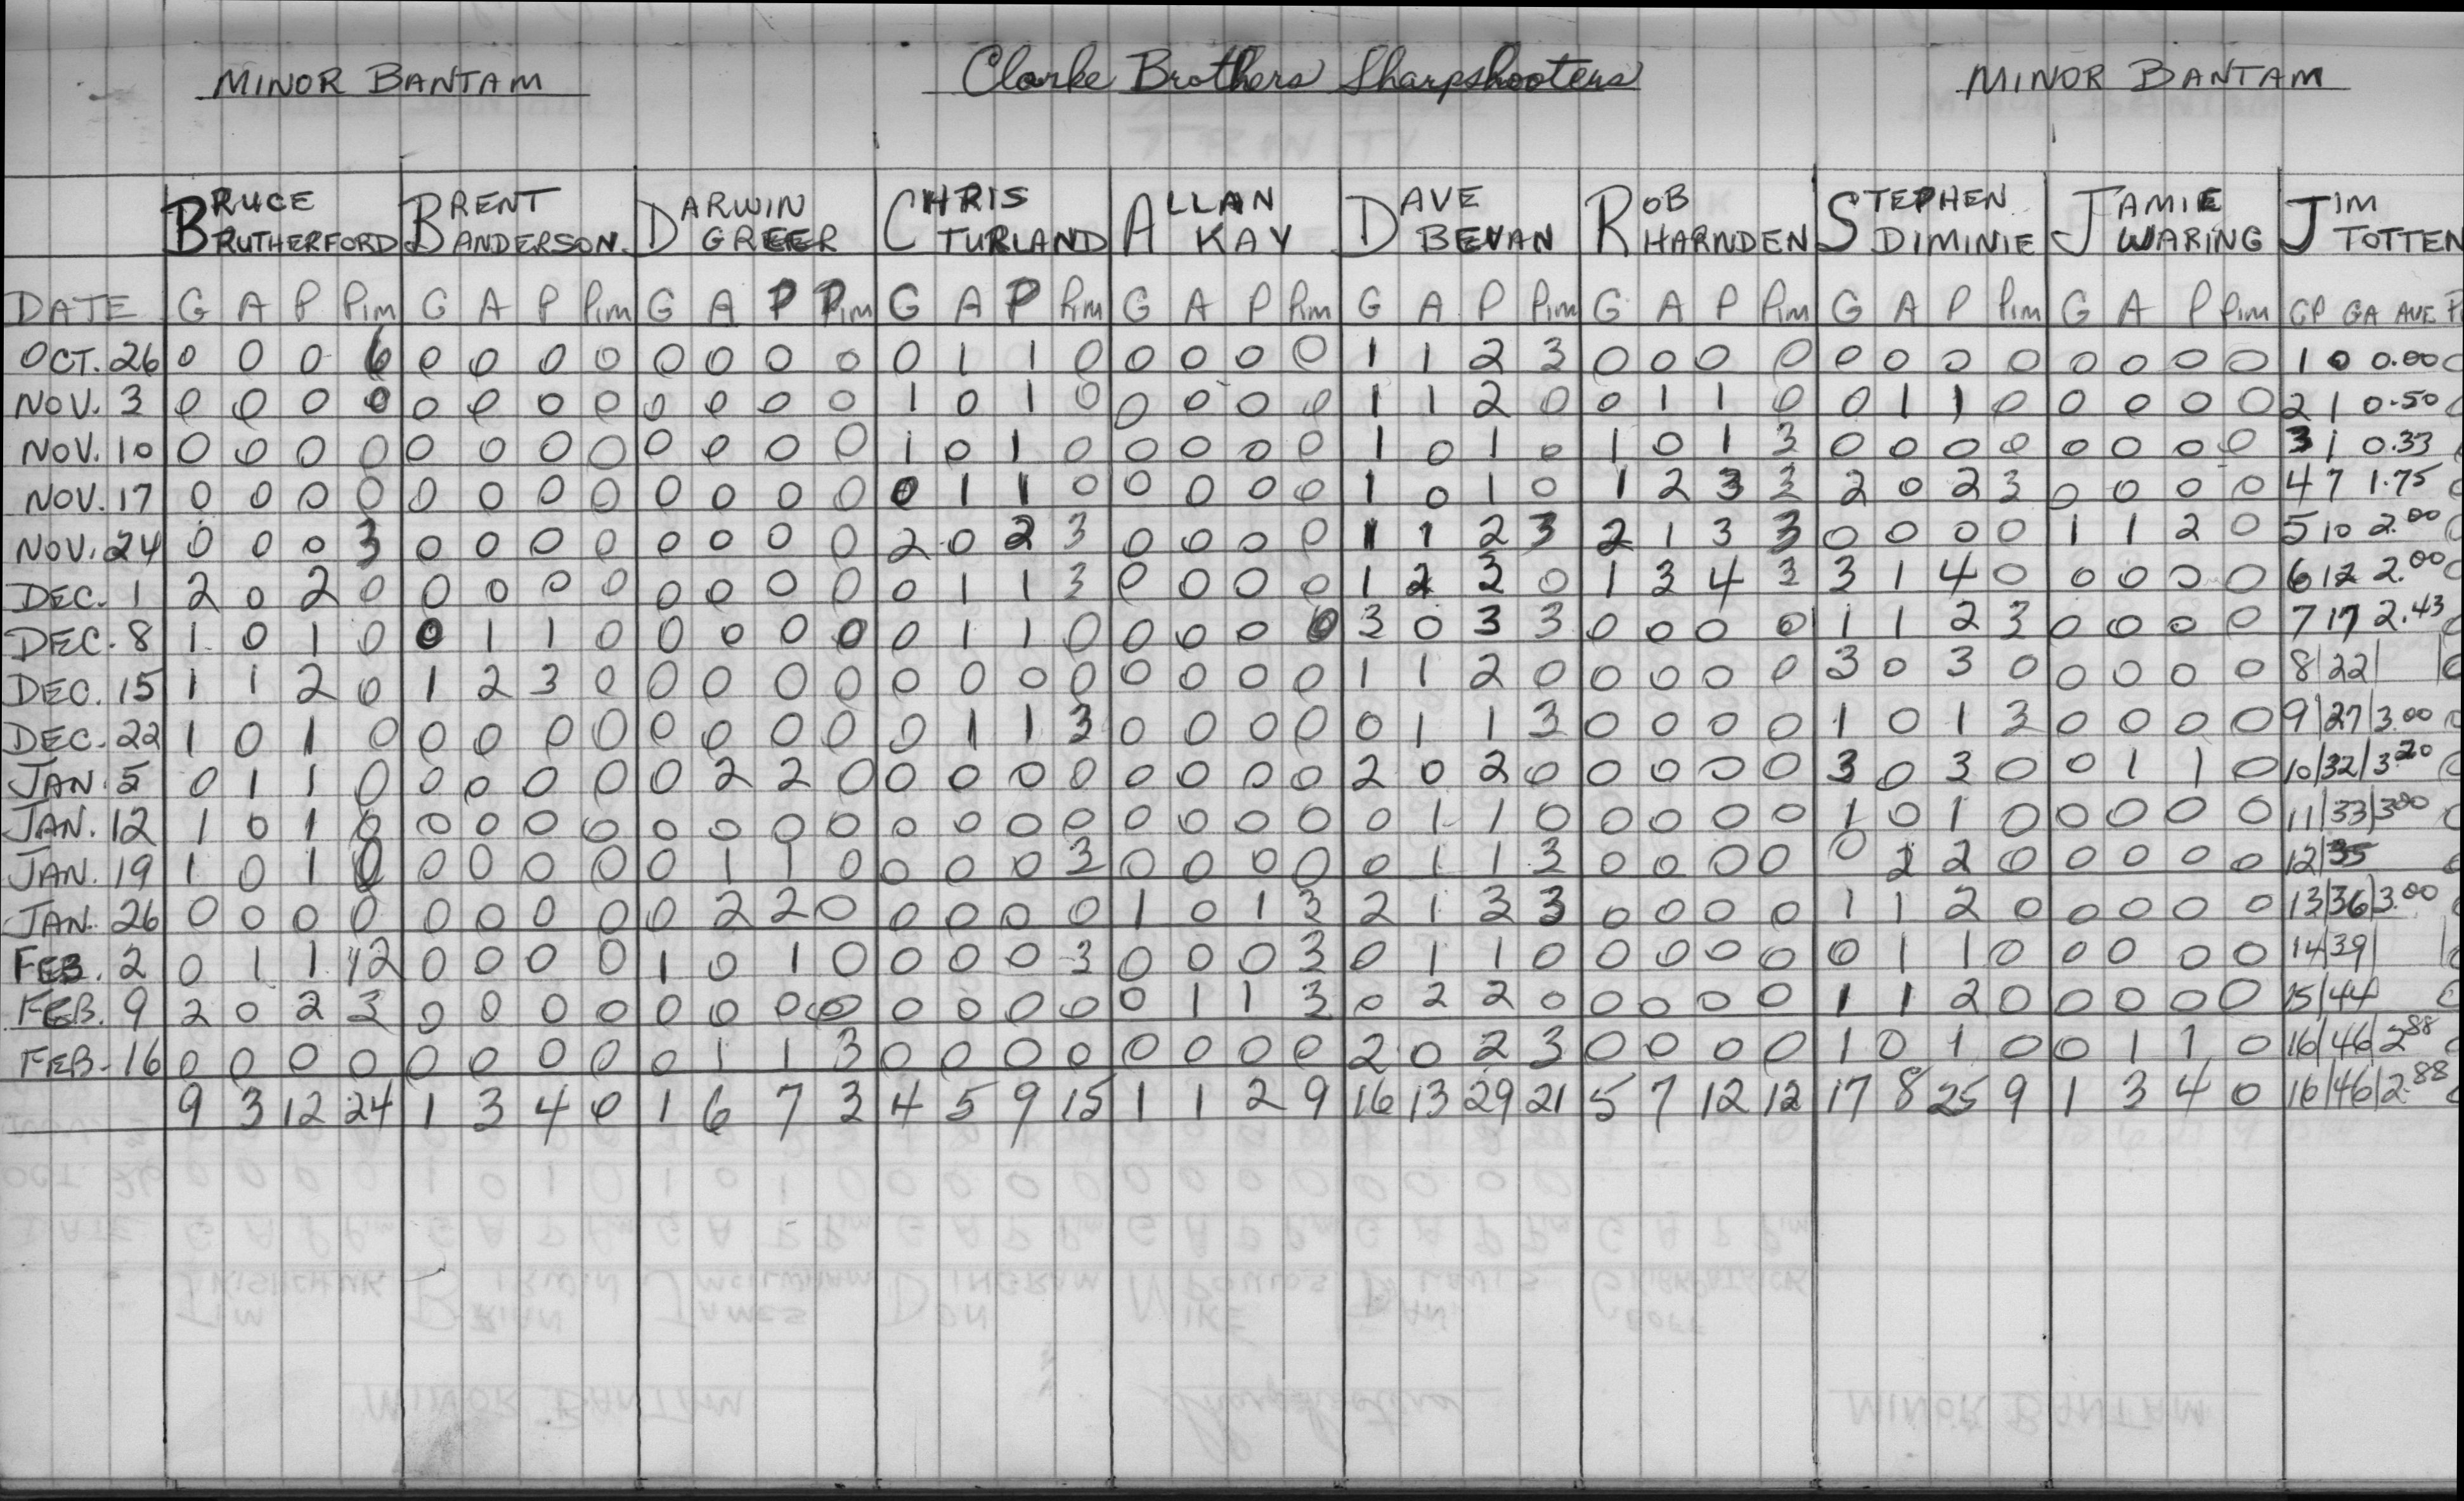 MINOR BANTAM Clarke Brothers Sharpshooters MINOR BANTAM
BRUCE RUTHERFORD BRENT ANDERSON DARWIN GREER CHRIS TURLAND ALLAN KAY DAVE BEVAN ROB HARNDEN STEPHEN DIMINIE JAMIE WARING JIM TOTTEN
DATE G A P Pim G A P Pim G A P Pim G A P Pim G A P Pim G A P Pim G A P Pim G A P Pim G A P Pim GP GA AVE
OCT. 26 0 0 0 6 0 0 0 0 0 0 0 0 0 1 1 0 0 0 0 0 1 1 2 3 0 0 0 0 0 0 0 0 0 0 0 0 1 0 0.00
NOV. 3 0 0 0 0 0 0 0 0 0 0 0 0 1 0 1 0 0 0 0 0 1 1 2 0 0 1 1 0 0 1 1 0 0 0 0 0 2 1 0.50
NOV. 10 0 0 0 0 0 0 0 0 0 0 0 0 1 0 1 0 0 0 0 0 1 0 1 0 1 0 1 3 0 0 0 0 0 0 0 0 3 1 0.33
NOV. 17 0 0 0 0 0 0 0 0 0 0 0 0 0 1 1 0 0 0 0 0 1 0 1 0 1 2 3 3 2 0 2 3 0 0 0 0 4 7 1.75
NOV. 24 0 0 0 3 0 0 0 0 0 0 0 0 2 0 2 3 0 0 0 0 1 1 2 3 2 1 3 3 0 0 0 0 1 1 2 0 5 10 2.00
DEC. 1 2 0 2 0 0 0 0 0 0 0 0 0 0 1 1 3 0 0 0 0 1 2 3 0 1 3 4 3 3 1 4 0 0 0 0 0 6 12 2.00
DEC. 8 1 0 1 0 0 1 1 0 0 0 0 0 0 1 1 0 0 0 0 0 3 0 3 3 0 0 0 0 1 1 2 3 0 0 0 0 7 17 2.43
DEC. 15 1 1 2 0 1 2 3 0 0 0 0 0 0 0 0 0 0 0 0 0 1 1 2 0 0 0 0 0 3 0 3 0 0 0 0 0 8 22
DEC. 22 1 0 1 0 0 0 0 0 0 0 0 0 0 1 1 3 0 0 0 0 0 1 1 3 0 0 0 0 1 0 1 3 0 0 0 0 9 27 3.00
JAN. 5 0 1 1 0 0 0 0 0 0 2 2 0 0 0 0 0 0 0 0 0 2 0 2 0 0 0 0 0 3 0 3 0 0 1 1 0 10 32 3.20
JAN. 12 1 0 1 0 0 0 0 0 0 0 0 0 0 0 0 0 0 0 0 0 0 1 1 0 0 0 0 0 1 0 1 0 0 0 0 0 11 33 3.00
JAN. 19 1 0 1 0 0 0 0 0 0 1 1 0 0 0 0 3 0 0 0 0 0 1 1 3 0 0 0 0 0 2 2 0 0 0 0 0 12 35
JAN. 26 0 0 0 0 0 0 0 0 0 2 2 0 0 0 0 0 1 0 1 3 2 1 3 3 0 0 0 0 1 1 2 0 0 0 0 0 13 36 3.00
FEB. 2 0 1 1 12 0 0 0 0 1 0 1 0 0 0 0 3 0 0 0 3 0 1 1 0 0 0 0 0 0 1 1 0 0 0 0 0 14 39
FEB. 9 2 0 2 3 0 0 0 0 0 0 0 0 0 0 0 0 0 1 1 3 0 2 2 0 0 0 0 0 1 1 2 0 0 0 0 0 15 44
FEB. 16 0 0 0 0 0 0 0 0 0 1 1 3 0 0 0 0 0 0 0 0 2 0 2 3 0 0 0 0 1 0 1 0 0 1 1 0 16 46 2.88
9 3 12 24 1 3 4 0 1 6 7 3 4 5 9 15 1 1 2 9 16 13 29 21 5 7 12 12 17 8 25 9 1 3 4 0 16 46 2.88